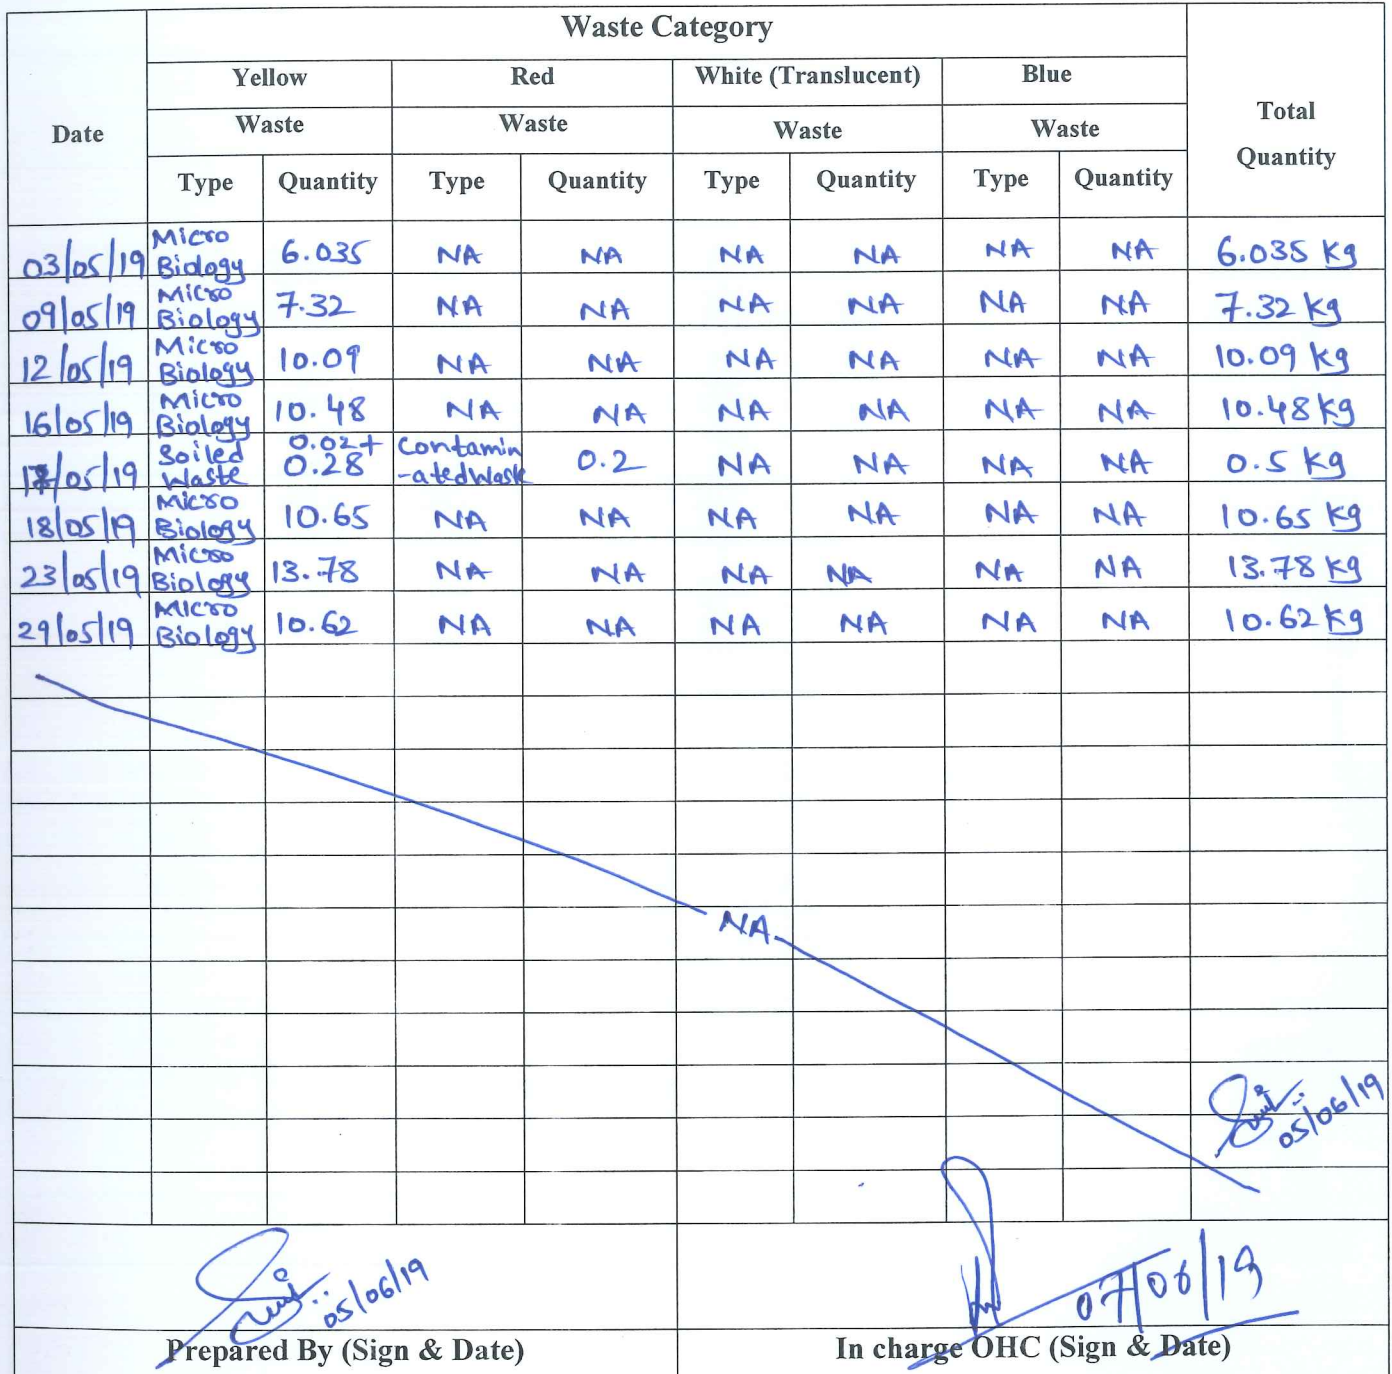 Waste Category
Yellow Red White (Translucent) Blue
Date Waste Waste Waste Waste Total Quantity
Type Quantity Type Quantity Type Quantity Type Quantity
03/05/19 Micro Biology 6.035 NA NA NA NA NA NA 6.035 kg
09/05/19 Micro Biology 7.32 NA NA NA NA NA NA 7.32 kg
12/05/19 Micro Biology 10.09 NA NA NA NA NA NA 10.09 kg
16/05/19 Micro Biology 10.48 NA NA NA NA NA NA 10.48 kg
17/05/19 Soiled Waste 0.02+ 0.28 Contamin -ated Waste 0.2 NA NA NA NA 0.5 kg
18/05/19 Micro Biology 10.65 NA NA NA NA NA NA 10.65 kg
23/05/19 Micro Biology 13.78 NA NA NA NA NA NA 13.78 kg
29/05/19 Micro Biology 10.62 NA NA NA NA NA NA 10.62 kg
NA
05/06/19
05/06/19 07/06/19
Prepared By (Sign & Date) In charge OHC (Sign & Date)